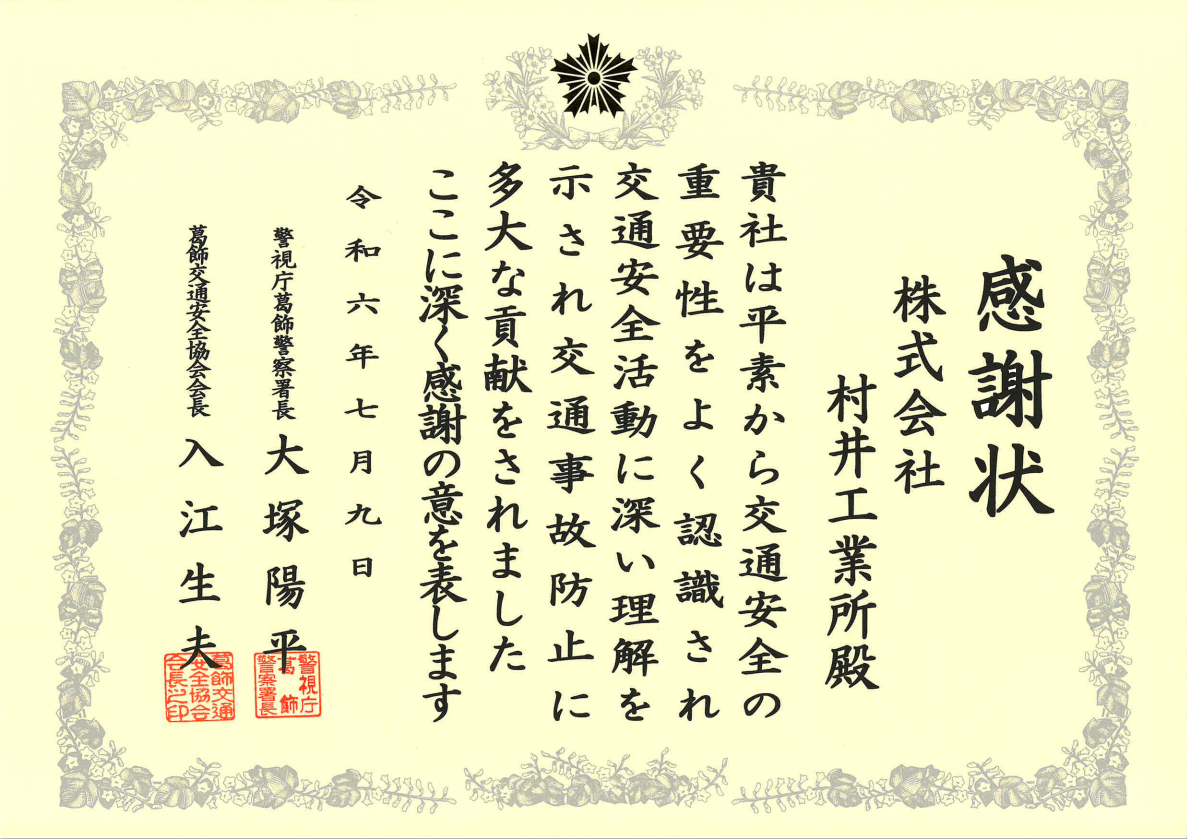 感謝状
株式会社
村井工業所殿
貴社は平素から交通安全の
重要性をよく認識され
交通安全活動に深い理解を
示され交通事故防止に
多大な貢献をされました
ここに深く感謝の意を表します
令和六年七月九日
警視庁葛飾警察署長 大塚陽平
葛飾交通安全協会会長 入江生夫
警視庁
葛飾
警察署長
葛飾交通
安全協会
会長之印